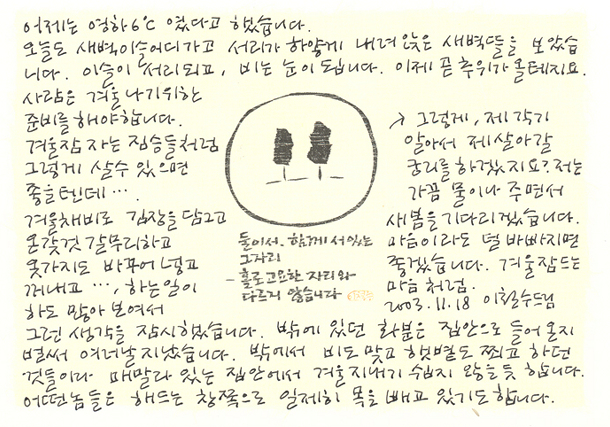 어제는 영하6℃ 였다고 했습니다.
오늘도 새벽이슬어디가고 서리가 하얗게 내려앉은 새벽뜰을 보았습
니다. 이슬이 서리되고, 비는 눈이 됩니다. 이제 곧 추위가 올테지요.
사람은 겨울나기위한
준비를해야합니다.
겨울잠 자는 짐승들처럼
그렇게 살수 있으면
좋을텐데….
겨울채비로 김장을 담그고
온갖것 갈무리하고
옷가지도 바꾸어 넣고
꺼내고 …, 하는일이
하도 많아 보여서
그런 생각을 잠시했습니다. 밖에 있던 화분은 집안으로 들어온지
벌써 여러날 지났습니다. 밖에서 비도 맞고 햇볕도 쬐고 하던
것들이라 메말라 있는 집안에서 겨울지내기 쉽지 않을듯 합니다.
어떤놈들은 해드는 창쪽으로 일제히 목을 빼고 있기도합니다.
그렇게, 제각기
알아서 제살아갈
궁리를하겠지요? 저는
가끔 물이나 주면서
새봄을기다리겠습니다.
마음이라도 덜 바빠지면
좋겠습니다. 겨울잠드는
마음처럼.
2003.11.18 이철수드림
둘이서. 함께 서있는
그자리
- 홀로고요한 자리와
다르지 않습니다